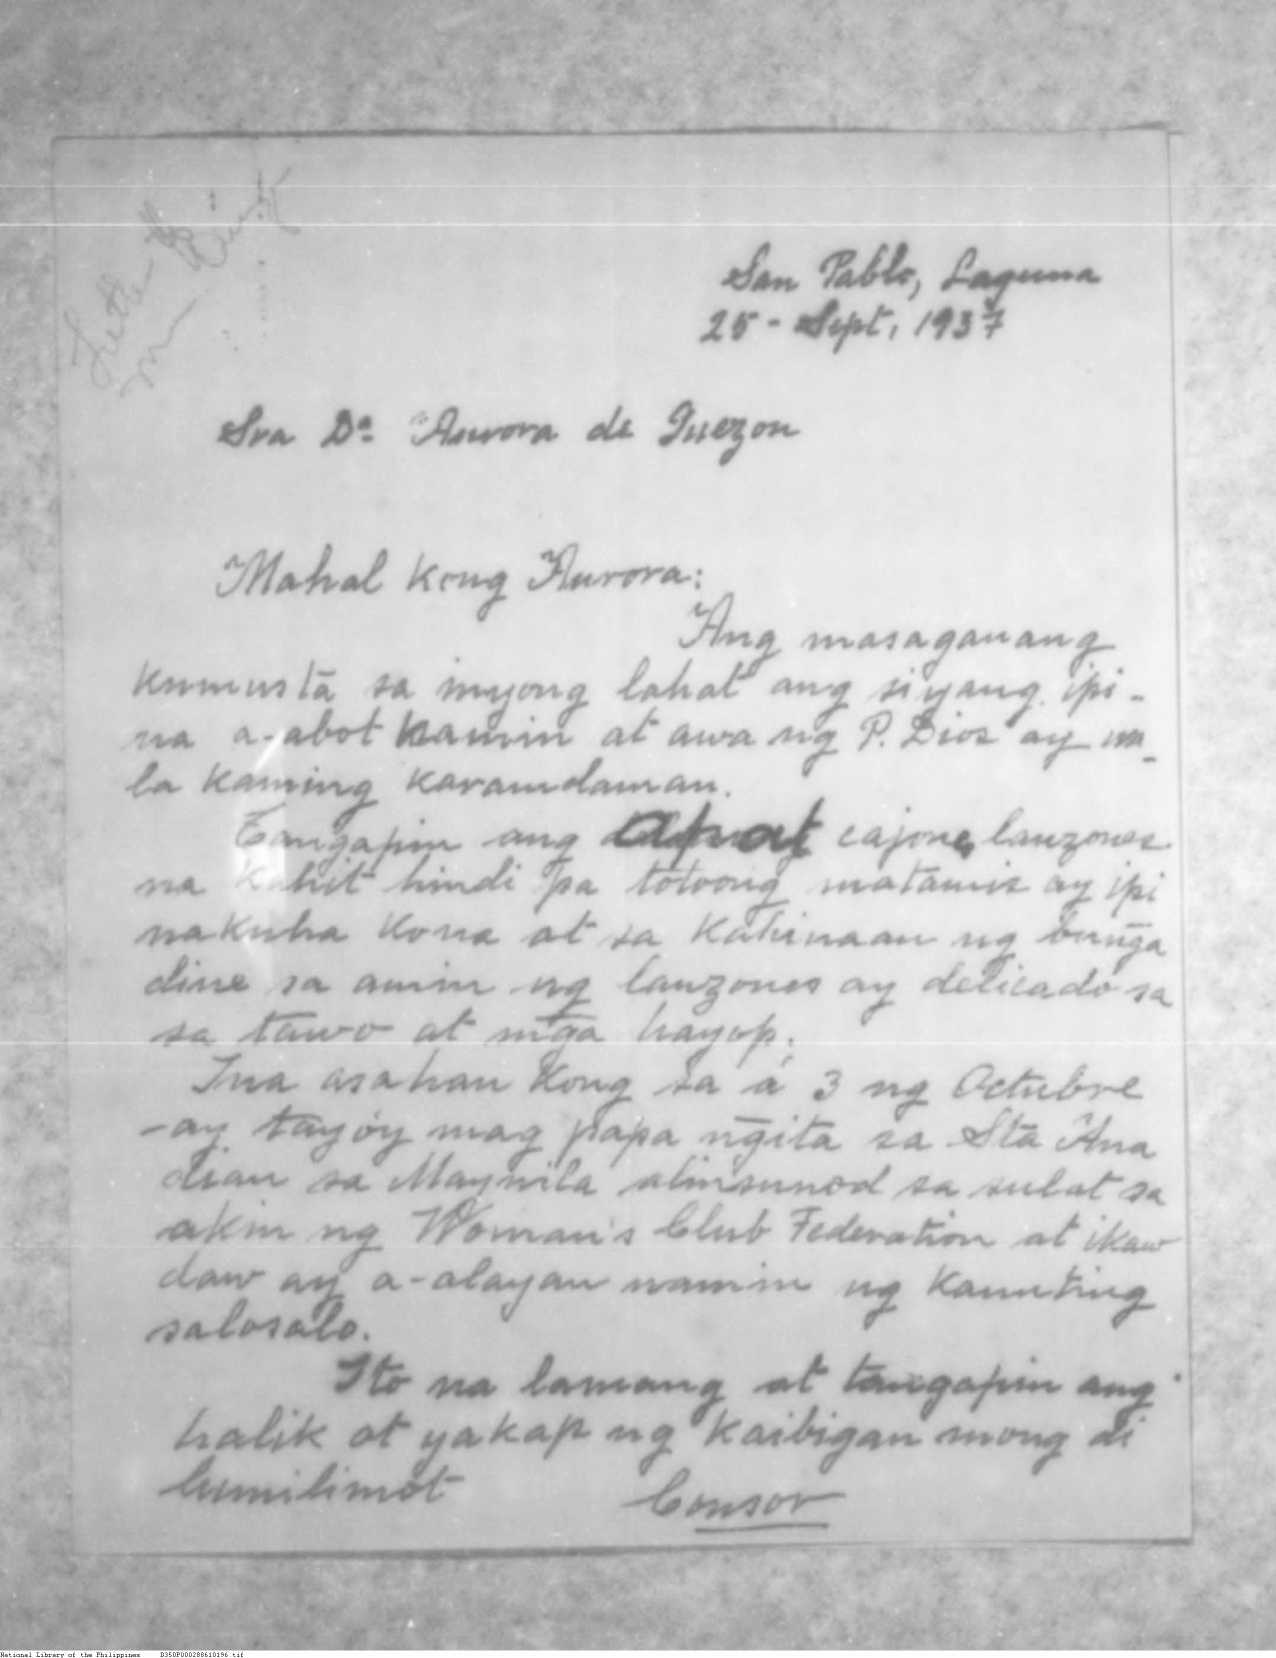 San Pablo, Laguna
25 - Sept, 1937
Sra Dª Aurora de Quezon
Mahal Kong Aurora:
Ang masaganang
Kumusta sa inyong lahat ang siyang ipi-
na a-abot namin at awa ng P. Dios ay wa-
la kaming karamdaman.
Tangapin ang apat cajones lanzones
na kahit hindi pa totoong matamis ay ipi
nakuha Kona at sa Kahinaan ng bunga
dine sa amin ng lanzones ay delicado sa
sa tawo at mga hayop.
Ina asahan Kong sa á 3 ng Octubre
-ay tayóy mag papa ngita sa Sta Ana
dian sa Maynila alinsunod sa sulat sa
akin ng Woman's Club Federation at ikaw
daw ay a-alayan namin ng Kaunting
salosalo.
Ito na lamang at tangapin ang
halik at yakap ng Kaibigan mong di
lumilimot
Consor
National Library of the Philippines D350P000288610196.tif